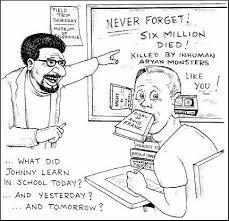 FIELD
TRIP
THURSDAY
MUSEUM
OF
NEVER FORGET!
SIX MILLION
DIED!
KILLED BY INHUMAN
ARYAN MONSTERS
LIKE
YOU!
DIARY
OF ANNE
FRANK
... WHAT DID
JOHNNY LEARN
IN SCHOOL TODAY?
... AND YESTERDAY?
... AND TOMORROW?